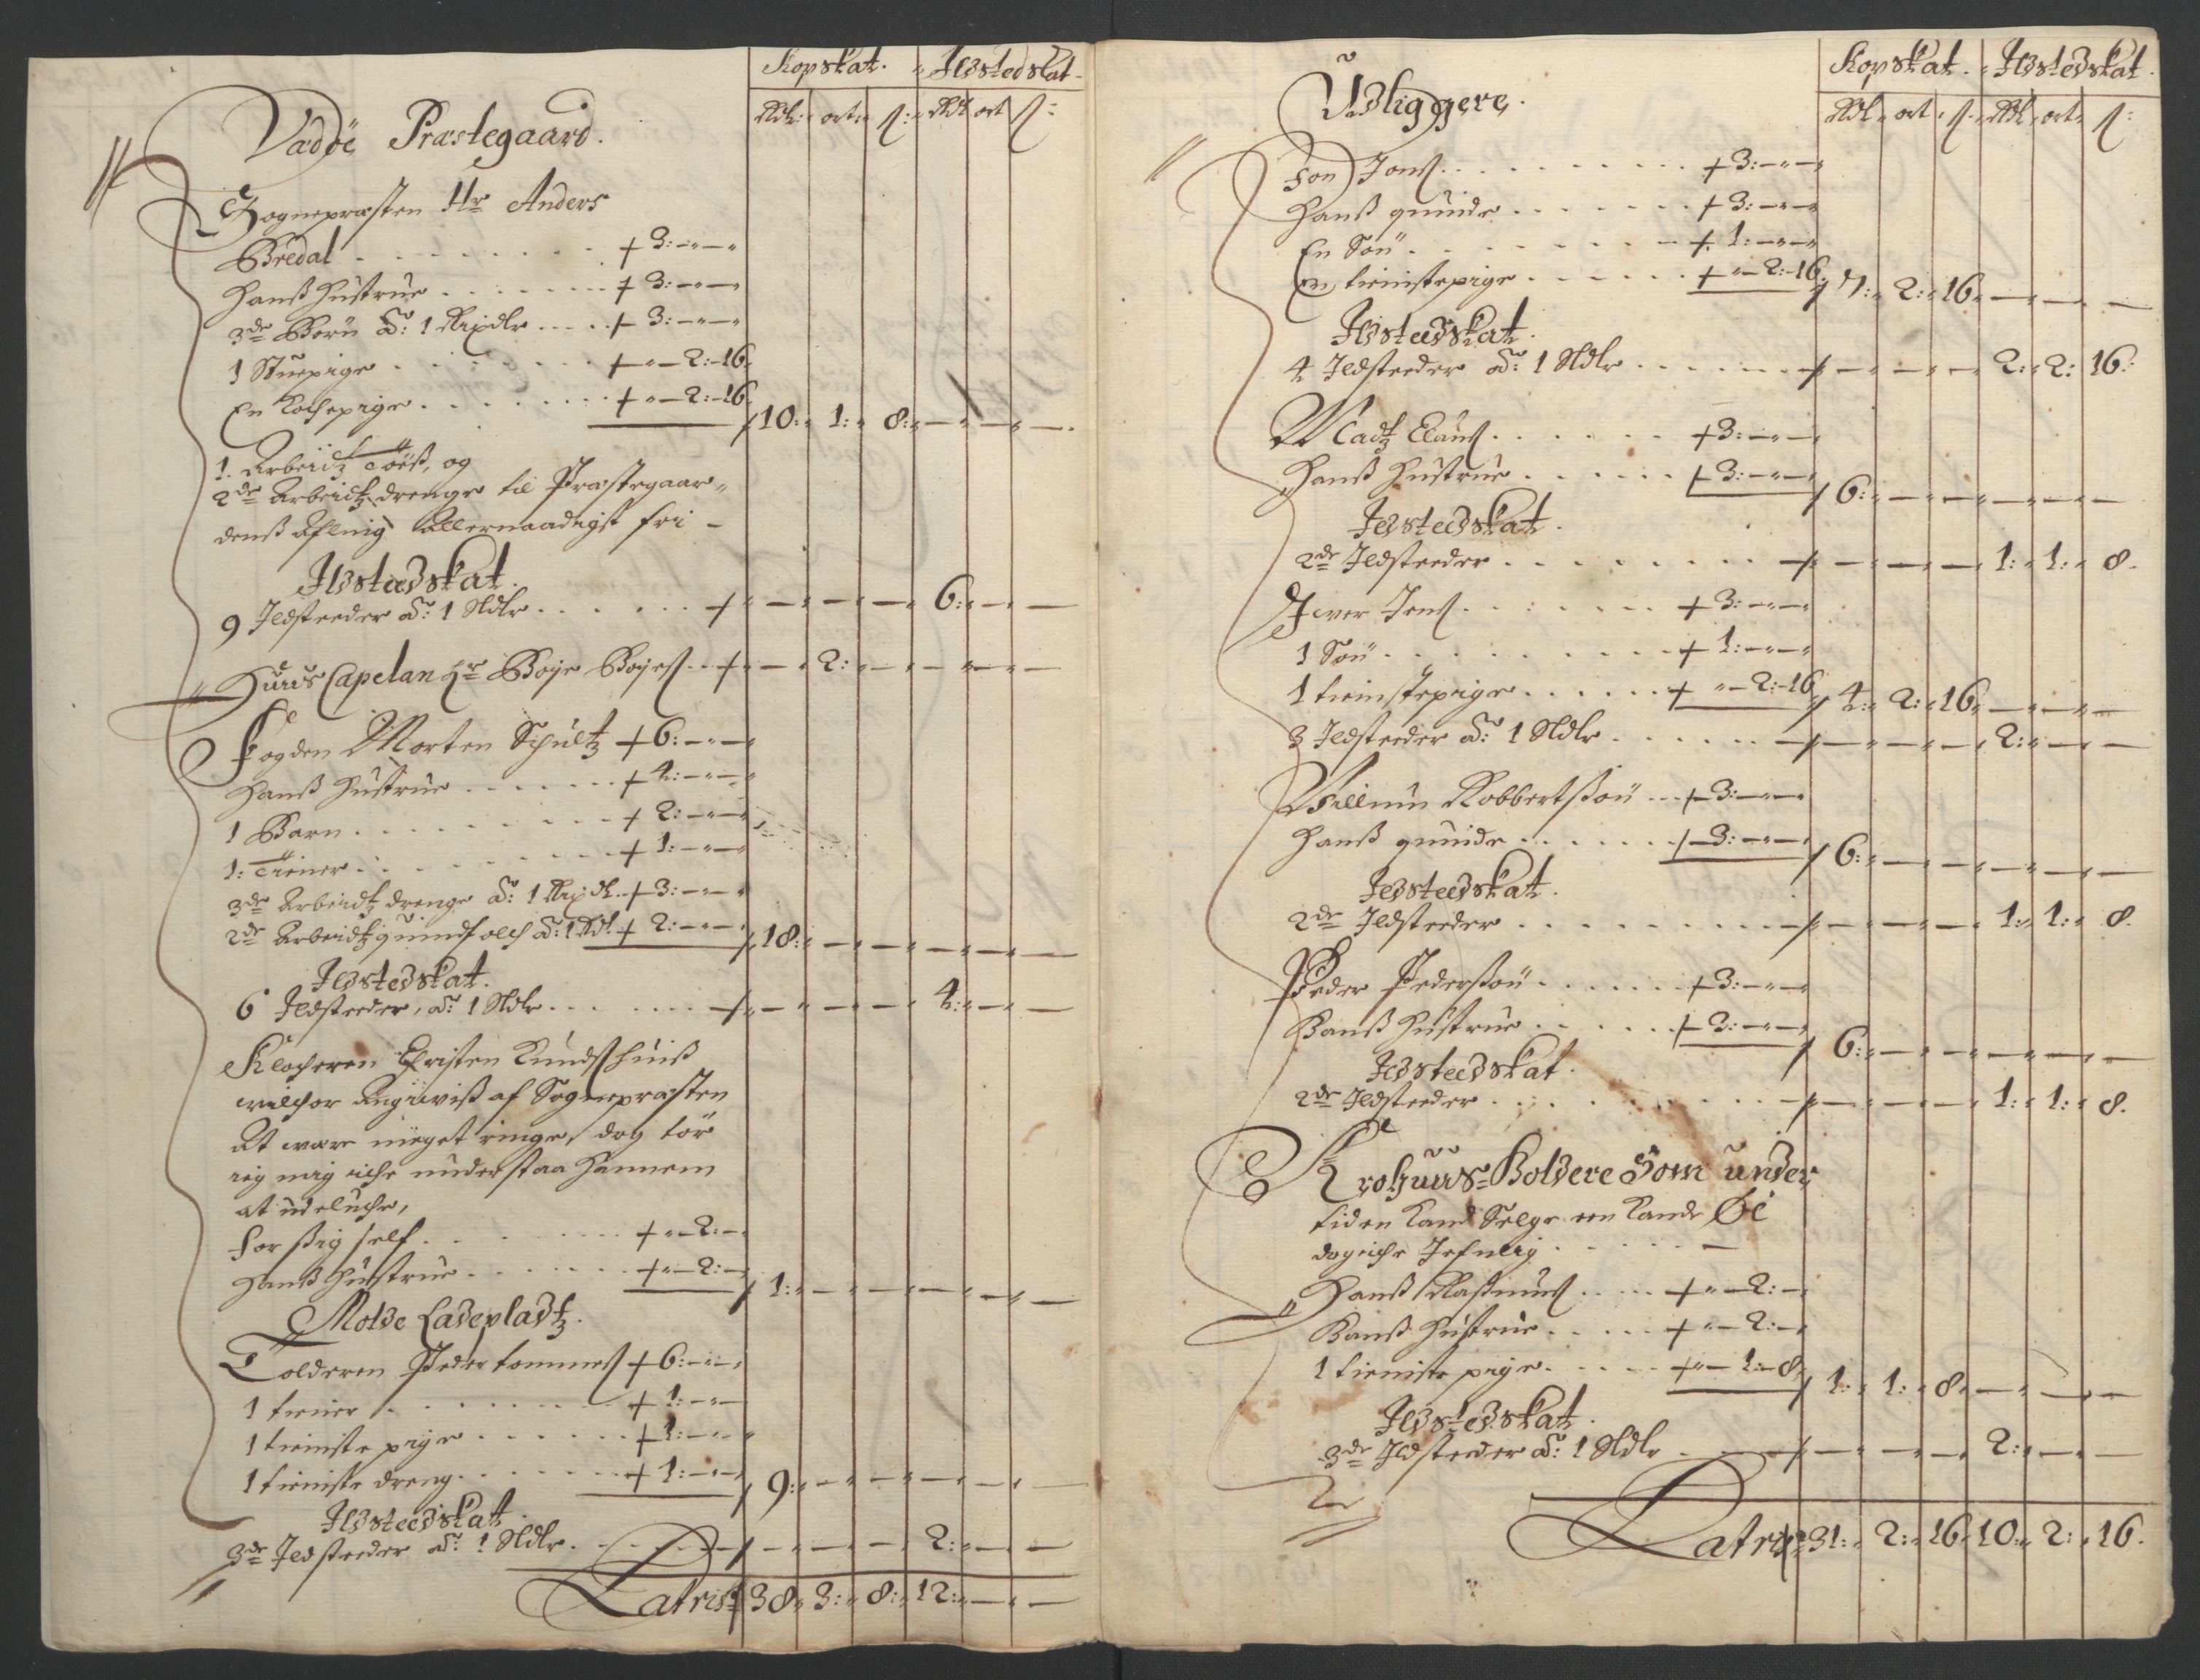 Kopskat. Ildstedskat.
Rdlr: ort: ß: Rdlr ort ß:
Vadöe Præstegaard.
Sognepræsten Hr Anders
Bredal . . . . + 3:-"-"
Hanß Hustrue . . . . + 3:-"-"
3de Börn á: 1 Rixdlr . . . . + 3:-"-"
1 Stuepige . . . . + "- 2:-16.
En Kochepige . . . . + "- 2:-16. 10: 1: 8: - - -
1. Arbeidtz Toëß, og
2de Arbeidtz drenge til Præstegaar-
denß Afling Allernaadigst fri -
Ildstædskat.
9 Ildsteeder á: 1 Sldlr . . . . + - - - 6: - -
Huus Capelan Hr Boye Boyeß . . + - 2: - - - -
Fogden Morten Schultz + 6:-"-
Hanß Hustrue . . . . + 4:-"-"
1 Barn . . . . + 2:-"-"
1: Tiener . . . . + 1:-"-"
3de Arbeidtz drenge á: 1 Rixdlr. + 3:-"-"
2de Arbeidtz quindfolch á: 1 Rdlr + 2:-"-" 18: - - - - -
Ildstedskat.
6 Ildsteeder, á: 1 Sldlr . . . . + - - - 4: - -
Klocheren Christen Knudß huiß
wilchor Angiwiß af Sognepræsten
At ware meget ringe, dog tör
ieg mig iche understaa hannem
at udeluche,
For ßig self . . . . + "- 2:-
Hanß Hustrue . . . . + "- 2:- 1: - - - - -
Molde Ladepladtz.
Tolderen Peder tommeß + 6:-"-"
1 tiener . . . . + 1:-"-
1 tieniste pige . . . . + 1:-"-"
1 tieniste dreng . . . . + 1:-"- 9: - - - - -
Ildsteedskat.
3de Ildsteeder á: 1 Sldlr . . . . - - - 2: - -
Latris: 38: 3: 8: 12: - -
Kopskat. Ildstedskat.
Rdlr ort ß. Rdlr ort ß:
Udliggere.
Jon Jonß . . . . + 3:-"-"
Hanß quinde . . . . + 3:-"-"
En Sön . . . . + 1:-"-"
En tienistepige . . . . + "- 2:-16. 7: 2: 16. - - -
Ildsteedskat.
4 Ildsteeder á: 1 Sldlr . . . . - - - 2: 2: 16:
Madtz Clauß . . . . + 3:-"-
Hanß Hustrue . . . . + 3:-"-" 6: - - - - -
Ildsteedskat.
2de Ildsteeder . . . . - - - 1: 1: 8.
Iver Jenß . . . . + 3:-"-"
1 Sön . . . . + 1:-"-"
1 tienistepige . . . . + "- 2:-16. 4: 2: 16. - - -
3 Ildsteeder á: 1 Sldlr . . . . - - - 2: - -
Willum Robbertßön . . + 3:-"-
Hanß quinde . . . . + 3:-"-" 6: - - - - -
Ildsteedskat.
2de Ildsteeder . . . . - - - 1: 1: 8.
Peder Pederßön . . . . + 3:-"-"
Hanß Hustrue . . . . + 3:-"-" 6: - - - - -
Ildsteedskat.
2de Ildsteeder . . . . - - - 1: 1: 8.
Krohuus-Holdere Som under
tiden Kand Selge een Kande Öl
dog iche Jefnlig . . . . -
Hanß Rasmuß . . . . + "- 2:-
Hanß Hustrue . . . . + "- 2:-
1 tieniste pige . . . . + "- 1:-8. 1: 1: 8. - - -
Ildstedskat.
3de Ildsteder á: 1 Sldlr . . - - - 2: - -
Latris: 31: 2: 16. 10: 2: 16.